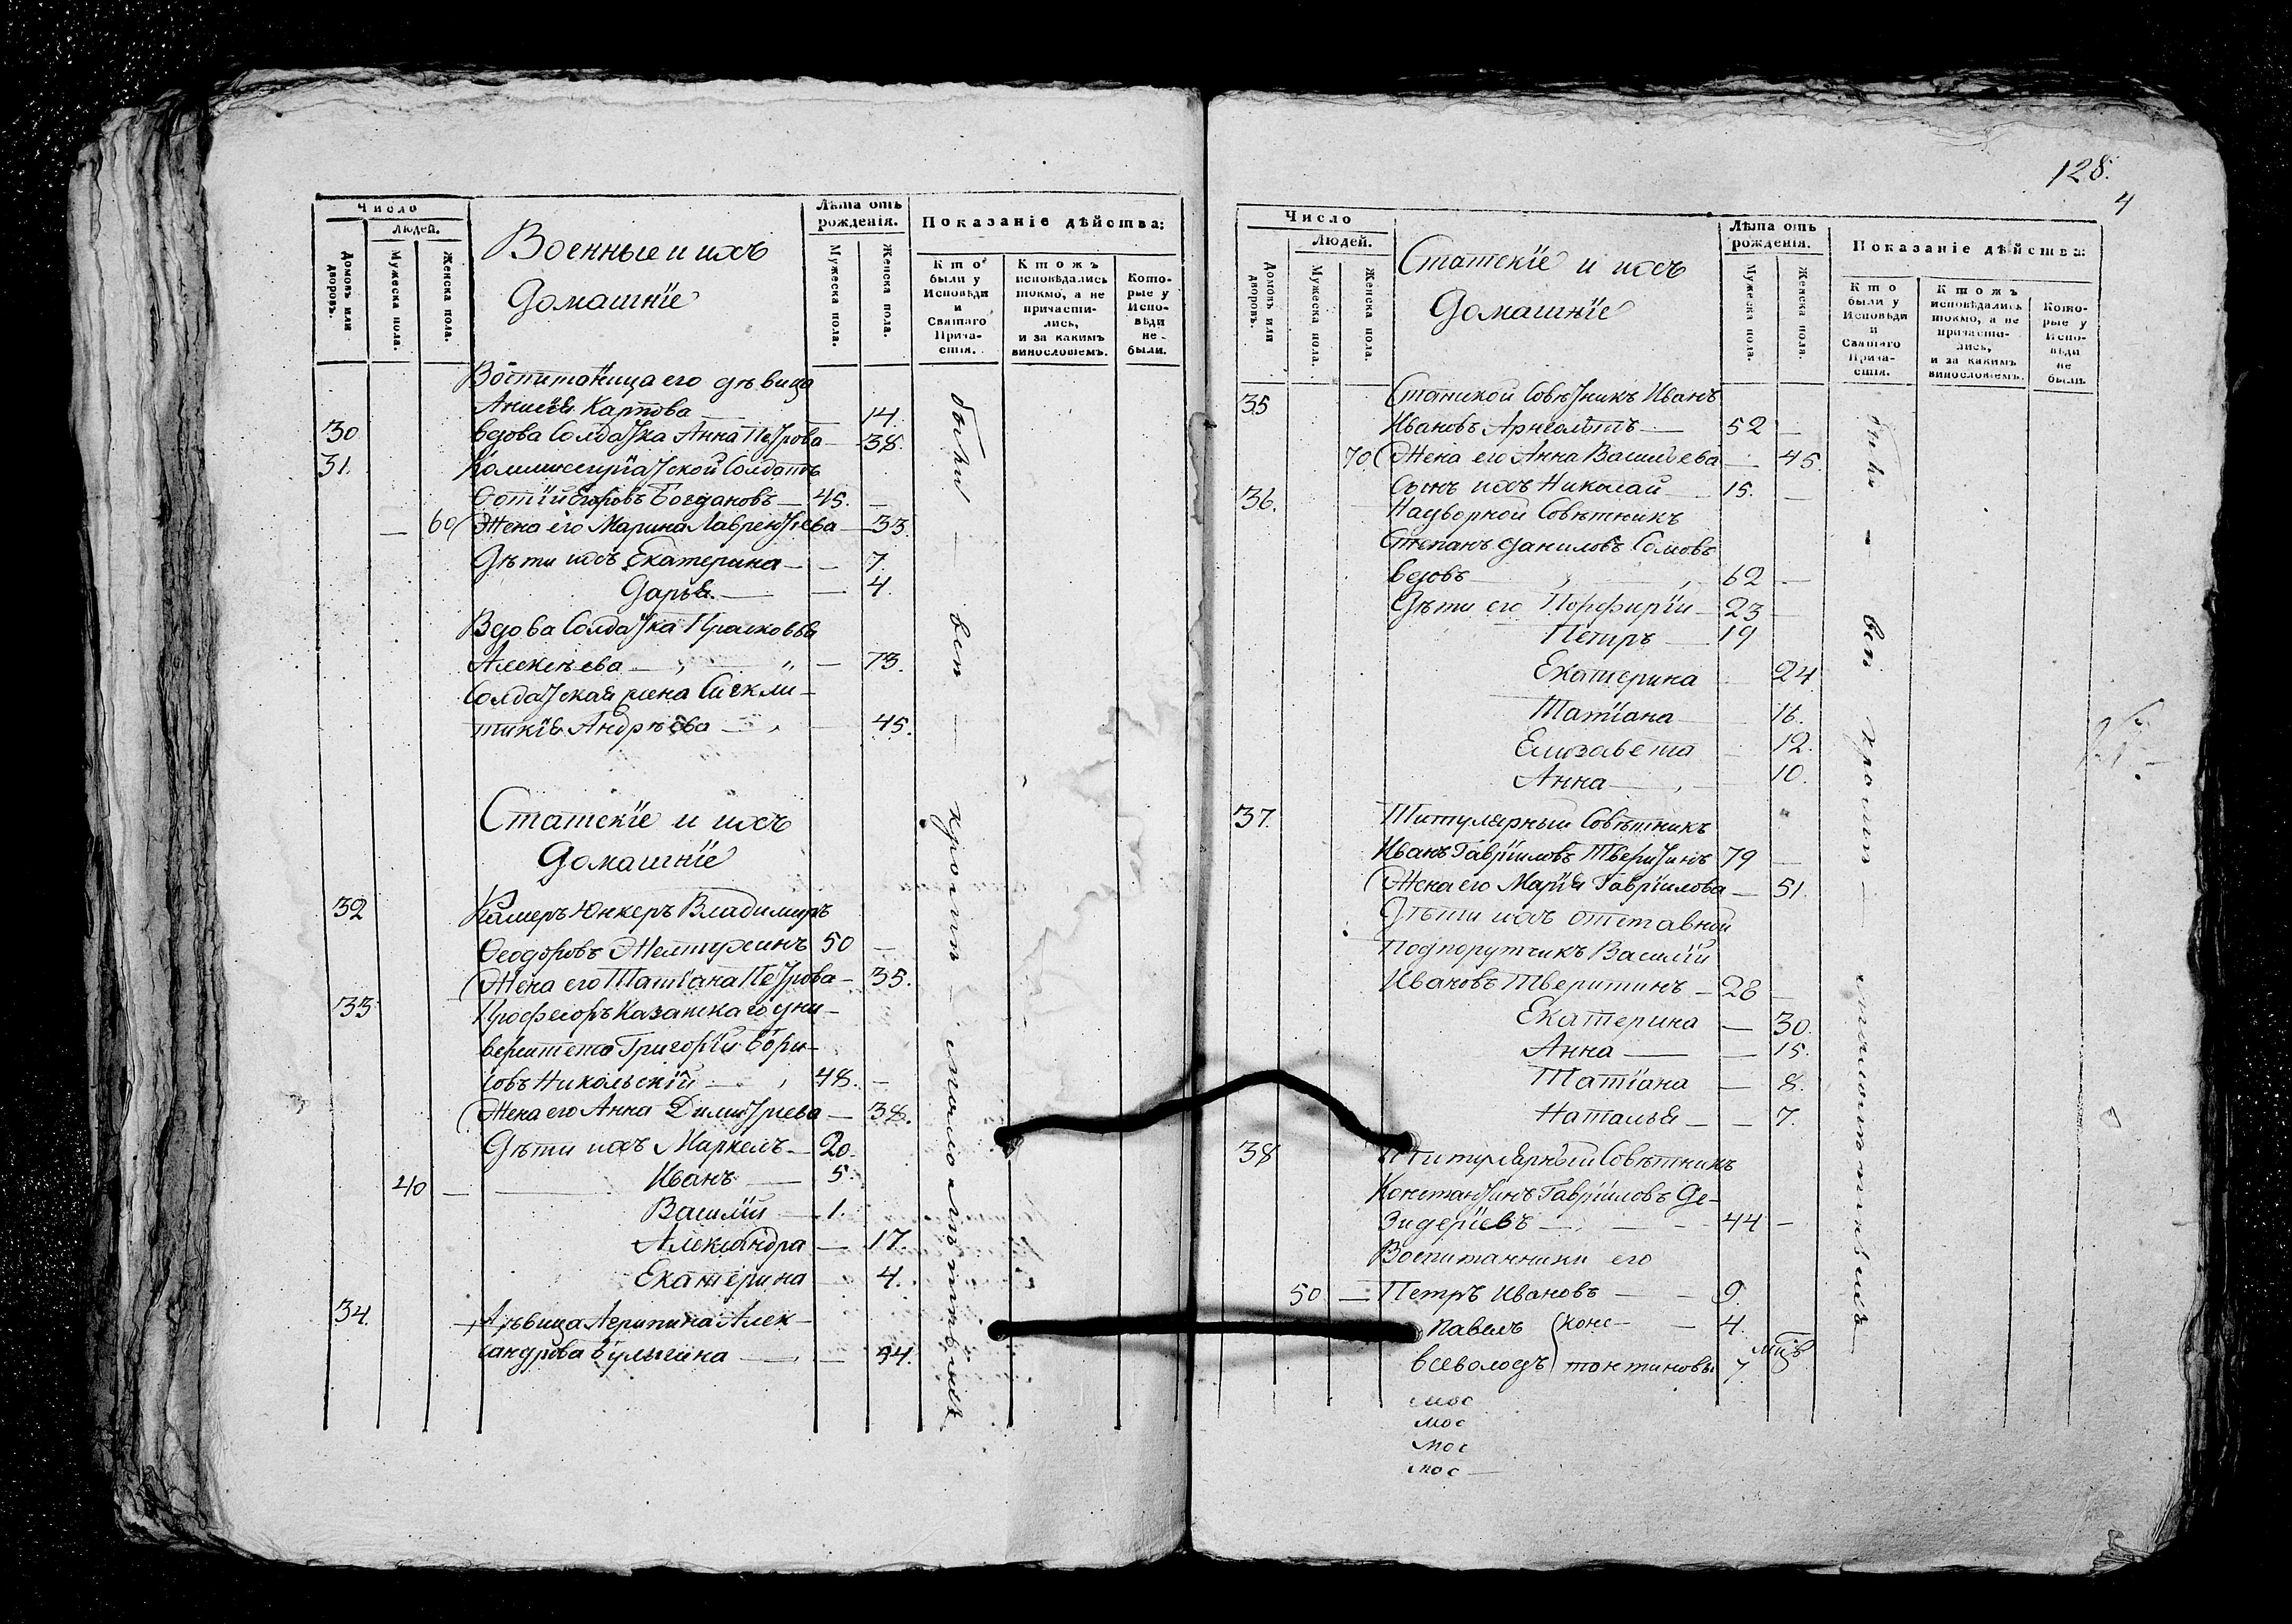 Число
Людей.
Домовъ или дворовъ.
Мужеска пола.
Женска пола.
Военные и ихъ
Домашнїе
Лѣта отъ
рожденія.
Мужеска пола.
Женска пола.
Показаніе дѣйства:
Кто были у Исповѣди и Святаго Прича-стія.
Ктожъ исповѣдались токмо, а не причасти-лись, и за какимъ винословіемъ.
Кото-рые у Испо-вѣди не были.
его дѣвица
Карпова — 14.
30 вдова Солдатка Анна Петрова — 38.
31. Солдатъ
Фотїй Егоровъ Богдановъ — 45. —
— 60 Жена его Марина Лаврентьева — 33.
Дѣти ихъ Екатерина — — 7.
Дарья — — 4.
Вдова Солдатка Прасковья
Алексѣева — — 73.
Солдатская жена Сигкли-
тикїя Андрѣева — — 45.
Статскїе и ихъ
Домашнїе
32 Камеръ Юнкеръ Владимиръ
Феодоровъ Желтухинъ 50 —
Жена его Татїана Петрова — 35.
33 Профессоръ Казанскаго уни-
верситета Григорїй Бори-
совъ Никольскїй — 48. —
Жена его Анна Димитриева — 38.
Дѣти ихъ Маркелъ — 20.
40 — Иванъ — 5.
Василїй — 1.
Александра — 17.
Екатерина — 4.
34. Дѣвица Агрипина Алек-
сандрова Булыгина — — 44.
были — вси — кромѣ — малолѣтнѣихъ
128.
4
Число
Людей.
Домовъ или дворовъ.
Мужеска пола.
Женска пола.
Статскїе и ихъ
Домашнїе
Лѣта отъ
рожденія.
Мужеска пола.
Женска пола.
Показаніе дѣйства:
Кто были у Исповѣди и Святаго Прича-стія.
Ктожъ исповѣдались токмо, а не причасти-лись, и за какимъ винословіемъ.
Кото-рые у Испо-вѣди не были.
35 Статской Совѣтникъ Иванъ
Ивановъ — 52 —
70 Жена его Анна Васильева — 45.
Сынъ ихъ Николай — 15. —
36. Надворной Совѣтникъ
Степанъ Даниловъ Сомовъ
вдовъ — 62 —
Дѣти его Порфирїй — 23 —
Петръ — 19
Екатерина 24
Татїана — 16.
Елизавета — 12.
Анна — 10.
37. Титулярный Совѣтникъ
Иванъ Гаврїиловъ Тверитинъ 79 —
Жена его Марїя Гаврїилова — 51.
Дѣти ихъ отставной
Подпорутчикъ Василїй
Ивановъ Тверитинъ — 28 —
Екатерина — 30.
Анна — — 15.
Татїана — 8.
Наталья — — 7.
38 Титулярный Совѣтникъ
Константинъ Гаврїиловъ Де-
зидерїевъ — 44 —
Воспитанники его
50 — Петръ Ивановъ — 9.
Павелъ (Конс- — 4.
Всеволодъ) тантиновы 7.
были — вси кромѣ — малолѣтнѣихъ
мос
мос
мос
мос —